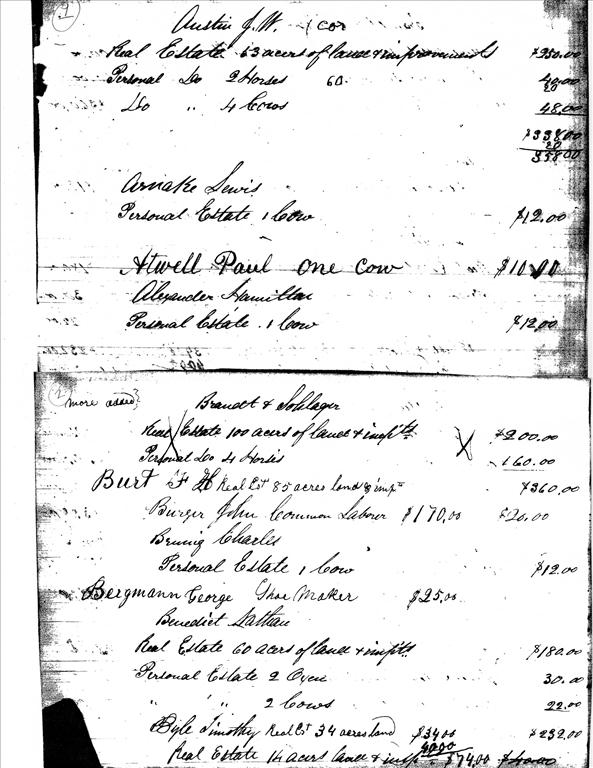 Austin J. W. 1 cor
Real Estate 53 acers of land & improvments $250.00
Personal Do 2 Horses 60. 40.00
20
Do " 4 Cows 48.00
$338.00
20
358.00
Arnake Lewis
Personal Estate 1 Cow $12.00
Atwell Paul one cow $10.00
Alexander Hamilton
Personal Estate . 1 Cow $12.00
more added
Brandt & Sohlager
Real Estate 100 acers of land & impts $200.00
Personal Do 4 Horses 160.00
Burt F H Real Est 85 acres land & impts $360.00
Burger John Common Laborer $170.00 $20.00
Brunig Charles
Personal Estate 1 Cow $12.00
Bergmann George Shoe Maker $25.00
Benedict Nathan
Real Estate 60 acers of land & impts $180.00
Personal Estate 2 Oxen 30.00
" " 2 Cows 22.00
Byle Timothy Real Est 34 acres land $34.00 $232.00
40.00
Real Estate 14 acers land & imp $74.00 $40.00